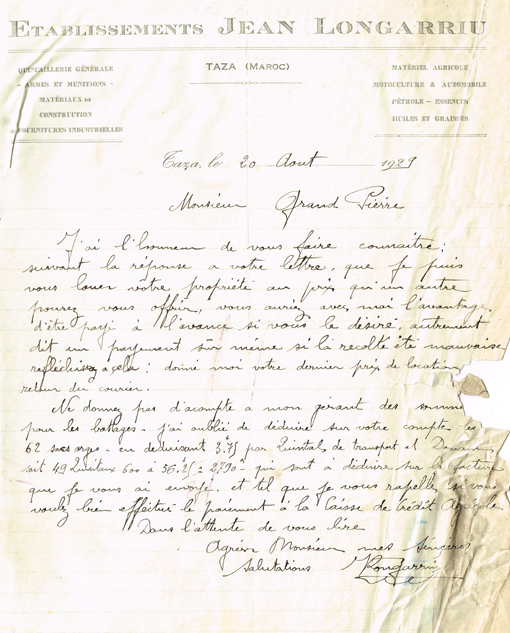 ETABLISSEMENTS JEAN LONGARRIU
TAZA (MAROC)
QUINCAILLERIE GÉNÉRALE
- ARMES ET MUNITIONS -
MATÉRIAUX DE
CONSTRUCTION
& FOURNITURES INDUSTRIELLES
MATÉRIEL AGRICOLE
MOTOCULTURE & AUTOMOBILE
PÉTROLE - ESSENCES
HUILES ET GRAISSES
Taza, le 20 Aout 1929
Monsieur Grand Pierre
J'ai l'honneur de vous faire connaitre,
suivant la réponse a votre lettre, que je puis
vous louer votre propriété au prix qu'un autre
pourez vous offrir, vous auriez avec moi l'avantage
d'être payé à l'avance si vous le désiré, autrement
dit un payement sûr même si la récolte été mauvaise
reflechissez a cela; donné moi votre dernier prix de location
retour du courier.
Ne donnez pas d'acompte a mon gérant des somme
pour les battages - j'ai oublié de déduire sur votre compte les
62 sacs orge - en deduisant 3.75 par Quintal de transport et
soit 49 Quintaux 600 à 56.25 = 2790 - qui sont a déduire sur la facture
que je vous ai envoyé et tel que je vous rapelle si vous
voulez bien effectué le paiement à la Caisse de Crédit Agricole
Dans l'attente de vous lire
Agréer Monsieur mes sincères
salutations JLongarriu